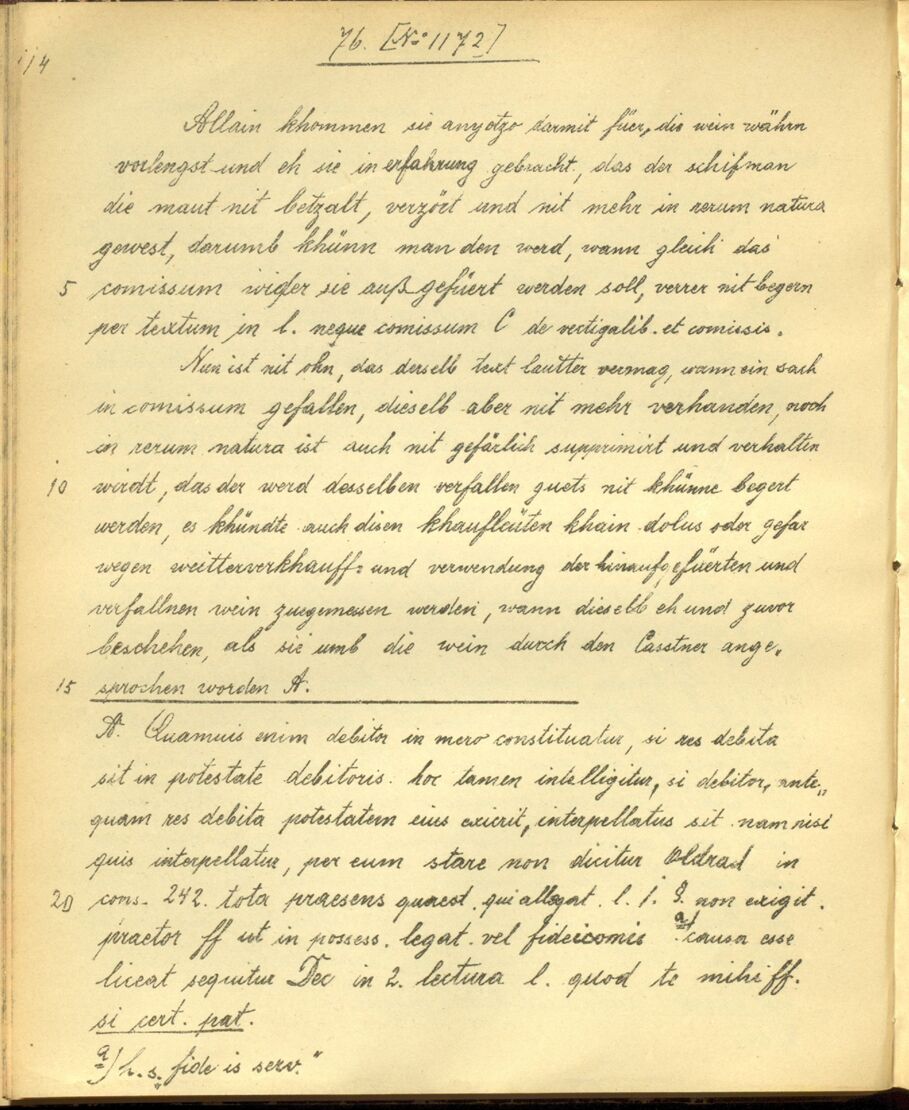 76. [No 1172]
114
Allain khommen sie anyetzo darmit für, die wein währn
vorlengst und eh sie in erfahrung gebracht, das der schifman
die maut nit betzalt, verzört und nit mehr in rerum natura
gewest, darumb khünn man den werd, wann gleich das
5 comissum wider sie außgefüert werden soll, verrer nit begern
per textum in l. neque comissum C de vectigalib. et comissis.
Nun ist nit ohn, das derselb text lautter vermag, wann ein sach
in comissum gefallen, dieselb aber nit mehr verhanden, noch
in rerum natura ist auch nit gefärlich supprimirt und verhalten
10 wirdt, das der werd desselben verfallen guets nit khünne begert
werden, es khündte auch disen khaufleüten khain dolus oder gefar
wegen weitterverkhauff= und verwendung der hinaufgefüerten und
verfallnen wein zuegemessen werden, wann dieselb eh und zuvor
beschehen, als sie umb die wein durch den Casstner ange„
15 sprochen worden A.
A. Quamuis enim debitor in mero constituatur, si res debita
sit in potestate debitoris. hoc tamen intelligitur, si debitor, ante„
quam res debita potestatem eius exierit, interpellatus sit. nam nisi
quis interpelletur, per eum stare non dicitur Oldrad in
20 cons. 242. tota praesens quaest. qui allegat. l. 1. §. non exigit.
praetor ff ut in possess. legat. vel fideicomis a) causa esse
liceat sequitur Dec in 2. lectura l. quod te mihi ff.
si cert. pat.
a) h. s. „fide is serv."